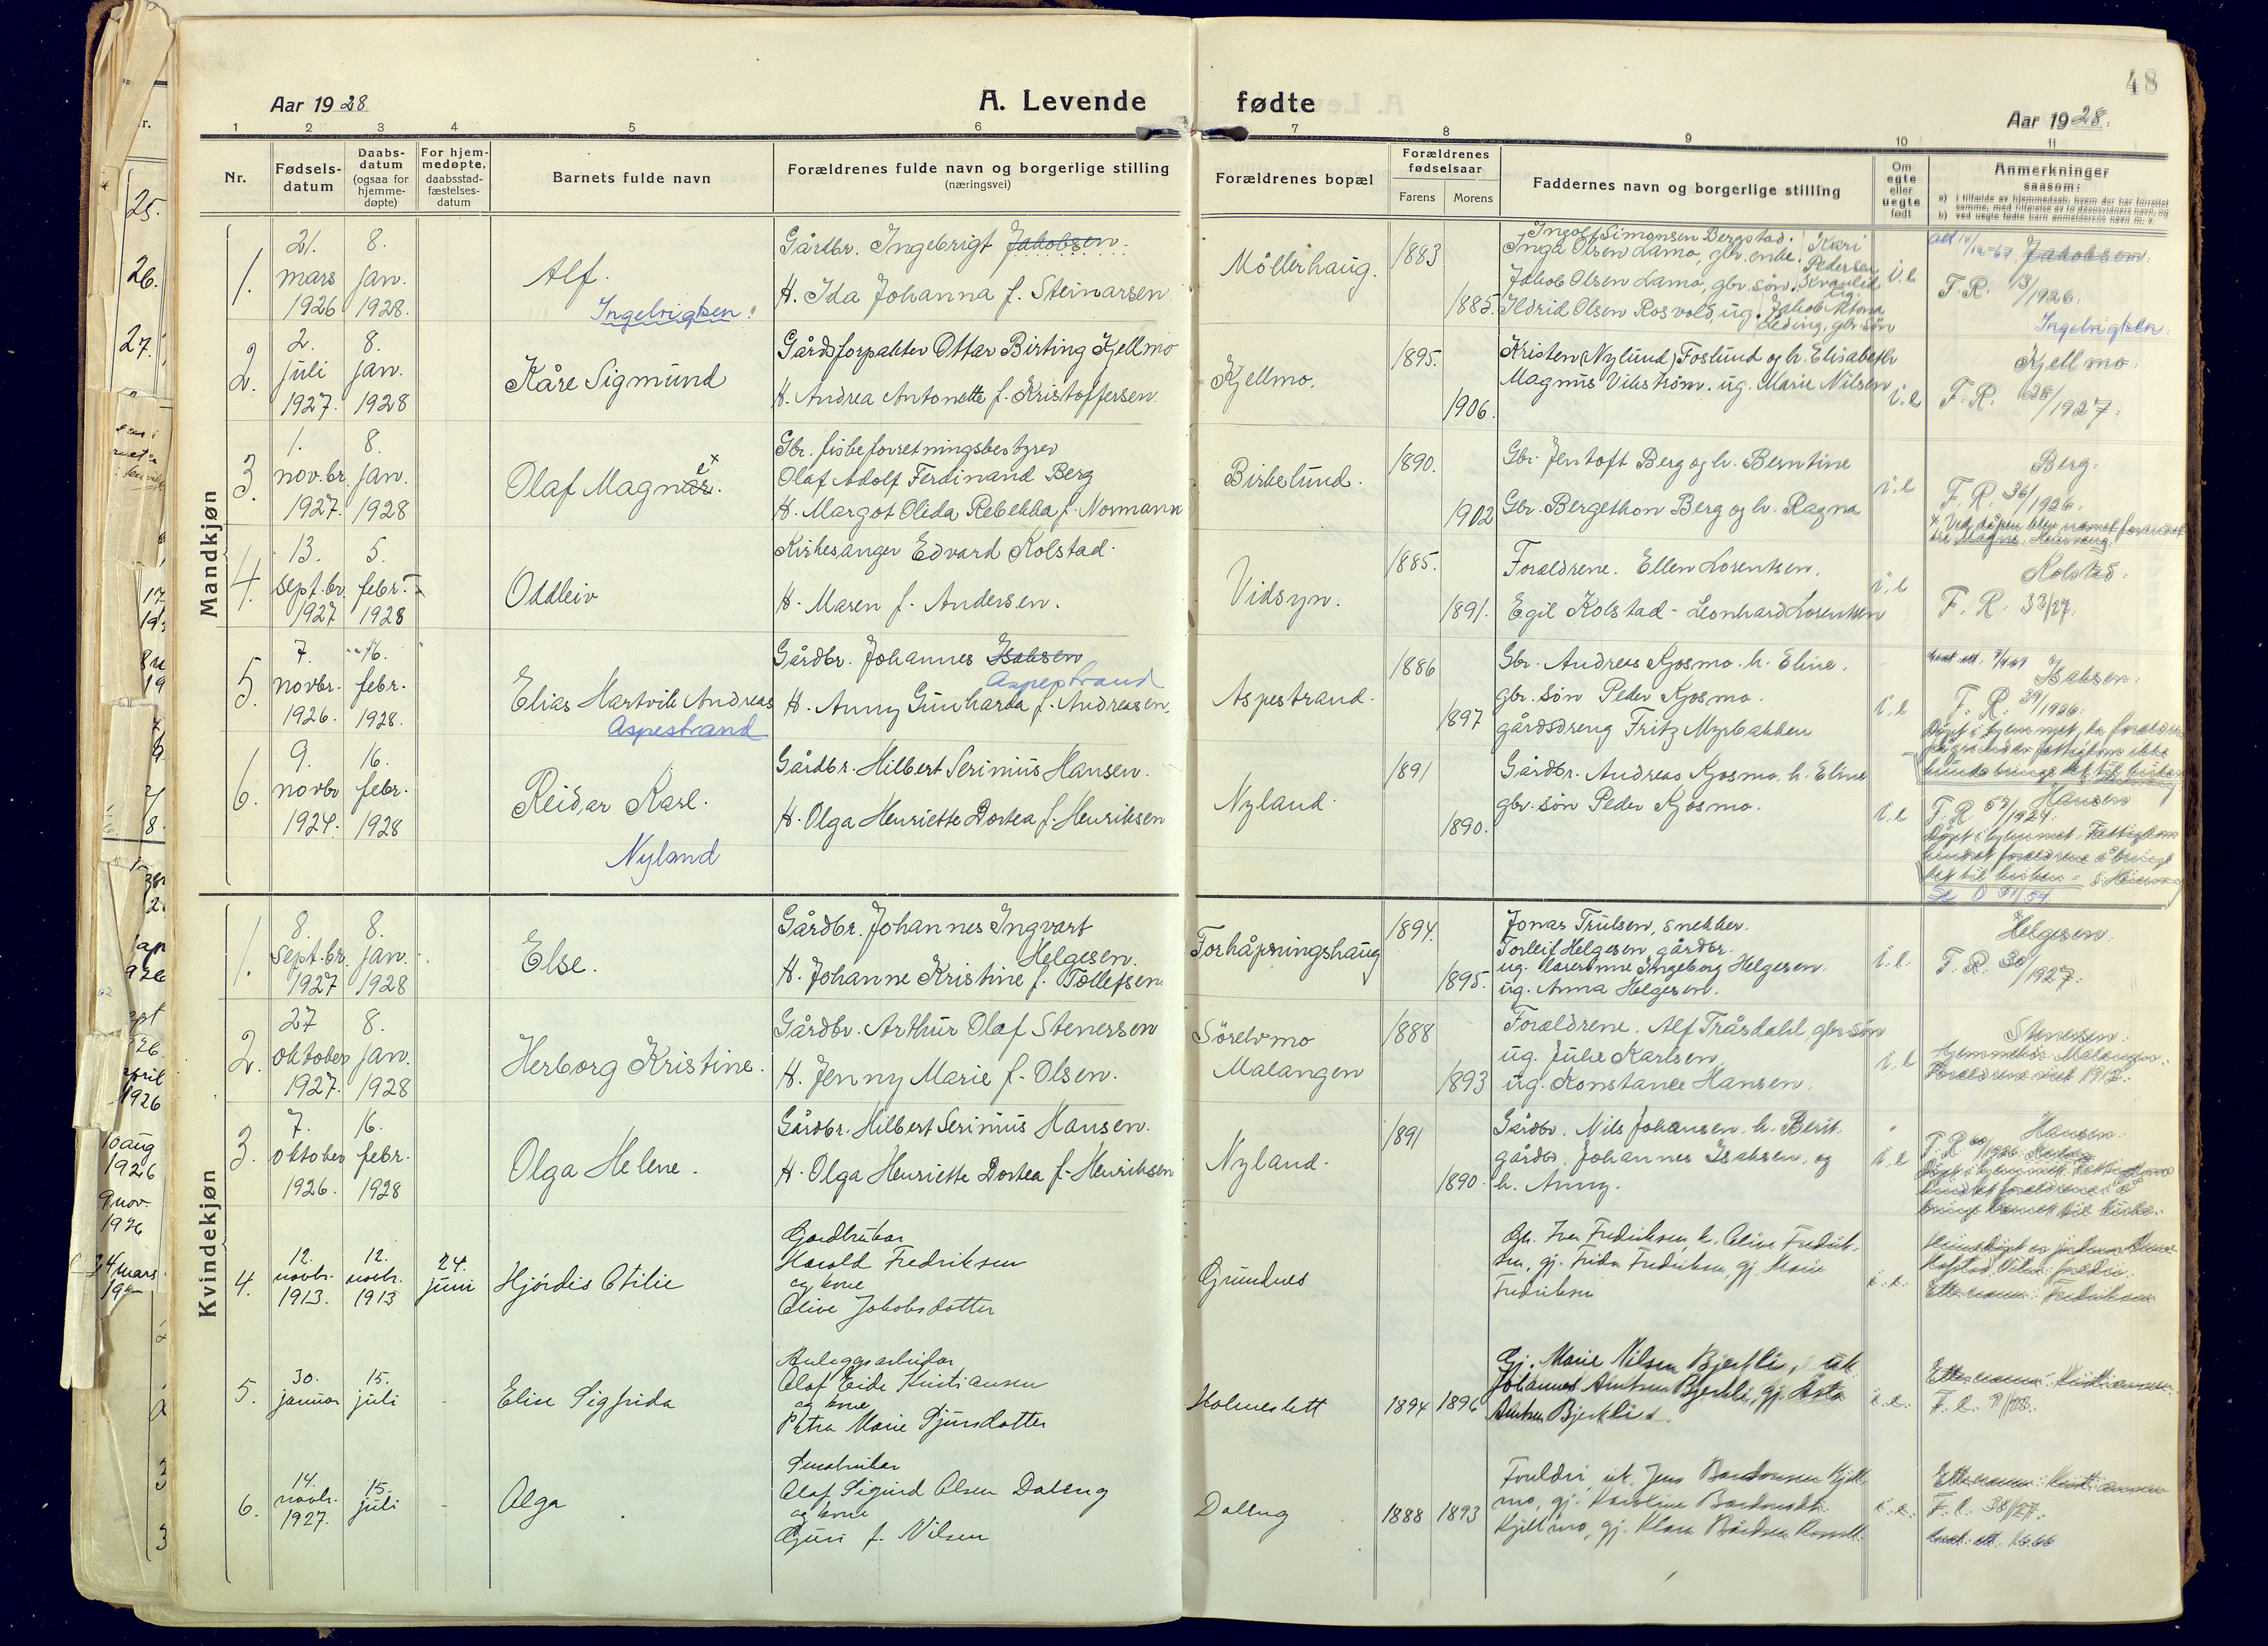 48
Aar 1928
A. Levende
fødte
Aar 1928.
1 2 3 4 5 6 7 8 9 10 11
Nr.
Fødsels-
datum
Daabs-
datum
(ogsaa for
hjemme-
døpte)
For hjem-
medøpte,
daabsstad-
fæstelses-
datum
Barnets fulde navn
Forældrenes fulde navn og borgerlige stilling
(næringsvei)
Forældrenes bopæl
Forældrenes
fødselsaar
Farens
Morens
Faddernes navn og borgerlige stilling
Om
egte
eller
uegte
født
Anmerkninger
saasom:
Mandkjøn
1.
21.
mars
1926
8.
jan.
1928.
Alf.
Ingebrigtsen.
Gårdbr. Ingebrigt Jakobsen.
H. Ida Johanna f. Steinarsen
Möllerhaug.
1883
1885.
Ingolf Simonsen Bergstad.
Inga Olsen Lamo, gbr. enke.
Kari
Pedersen
Jakob Olsen Lamo, gbr. søn.
Ildrid Olsen Rosvold, ug.
i.e
Jakobsen.
F. R. 13/1926.
Ingebrigtsen.
2.
2.
juli
1927.
8.
jan.
1928
Kåre Sigmund
Gårdsforpakter Ottar Birting Kjellmo
H. Andrea Antonette f. Kristoffersen.
Kjellmo.
1895.
1906.
Kristen (Nylund) Foslund og h. Elisabeth
Magnus Vikstrøm. ug. Marie Nilsen
i.e
Kjellmo.
F. R. 28/1927.
3.
1.
nov.br.
1927.
8.
jan.
1928
Olaf Magnar.
Gbr. fiskeforretningsbestyrer
Olaf Adolf Ferdinand Berg
H. Margot Olida Rebekka f. Normann
Birkelund.
1890.
1902
Gbr. Jentoft Berg og h. Berntine
Gbr. Bergethon Berg og h. Ragna
i.e
Berg.
F. R. 36/1926.
x Ved dåpen blev navnet forandret
til Magne.
4.
13.
sept.br.
1927
5.
febr.
1928
Oddleiv
Kirkesanger Edvard Kolstad.
H. Maren f. Andersen.
Vidsyn.
1885.
1891.
Forældrene. Ellen Lorentsen.
Egil Kolstad - Leonhard Lorentsen
i.e
Kolstad.
F. R. 33/27.
5.
7.
novbr.
1926.
16.
febr.
1928.
Elias Hartvik Andreas
Aspestrand
Gårdbr. Johannes Isaksen
Aspestrand
H. Anny Gunharda f. Andreasen.
Aspestrand.
1886
1897
Gbr. Andreas Kjosmo. h. Eline.
gbr. søn Peder Kjosmo.
gårdsdreng Fritz Myrbakken
i.e
Isaksen.
F. R. 39/1926.
Døpt i hjemmet, da forældre
på grund av fattigdom ikke
kunde bringe det til kirken
6.
9.
novbr
1924.
16.
febr.
1928
Reidar Karl.
Nyland
Gårdbr. Hilbert Serinius Hansen.
H. Olga Henriette Dortea f. Henriksen
Nyland.
1891
1890.
Gårdbr. Andreas Kjosmo. h. Eline
gbr. søn Peder Kjosmo.
i.e
Hansen
F. R. 57/1924.
Døpt i hjemmet. Fattigdom
hindret forældrene å bringe
det til kirken.
Kvindekjøn
1.
8.
sept.br.
1927
8.
jan.
1928
Else.
Gårdbr. Johannes Ingvart
Helgesen.
H. Johanne Kristine f. Tollefsen
Forhåpningshaug
1894.
1895.
Jonas Trulsen, snekker.
Torleif Helgesen, gårdbr.
ug. Ingeborg Helgesen.
ug. Anna Helgesen.
i.e.
Helgesen.
F. R. 30/1927.
2.
27
oktober
1927.
8.
jan.
1928
Herborg Kristine.
Gårdbr. Arthur Olaf Stenersen
H. Jenny Marie f. Olsen.
Sörelvmo
Malangen
1888
1893
Forældrene. Alf Trårdahl, gbr. søn
ug. Julie Karlsen,
ug. Konstance Hansen.
i.e
Stenersen.
Hjemmehör. Malangen.
Forældrene viet 1912.
3.
7.
oktober
1926.
16.
febr.
1928
Olga Helene.
Gårdbr. Hilbert Serinius Hansen.
H. Olga Henriette Dortea f. Henriksen
Nyland.
1891
1890.
Gårdbr. Nils Johansen. h. Berit.
gårdbr. Johannes Isaksen, og
h. Anny.
i.e
Hansen.
Døpt i hjemmet. Fattigdom
hindret forældrene i å
bringe barnet til kirke.
4.
12.
novbr.
1913.
12.
novbr.
1913
24.
juni
Hjördis Otilie
Gardbrukar
Harald Fredriksen
og kone
Olive Jakobsdotter
Grundnes
i.e.
Etternamn: Fredriksen
5.
30.
januar
15.
juli
Elin Sigfrida
Anleggsarbeidar
Olaf Eide Kristiansen
og kone
Petra Marie Sjursdotter
Holmeslett
1894
1896
Gj. Marie Nilsen Bjerkli, uk.
Johannes Bjerkli, gj. Asta
Bjerkli
i.e.
Etternamn: Kristiansen
6.
14.
novbr.
1927.
15.
juli
Olga
Småbrukar
Olaf Sigurd Olsen Daleng
og kone
Guri f. Nilsen
Daleng
1888
1893
Foreldri, uk. Jens Bardonsen Kjell-
mo, gj. Karoline
Kjellmo, gj. Klara
i.e.
Etternamn: Kristiansen